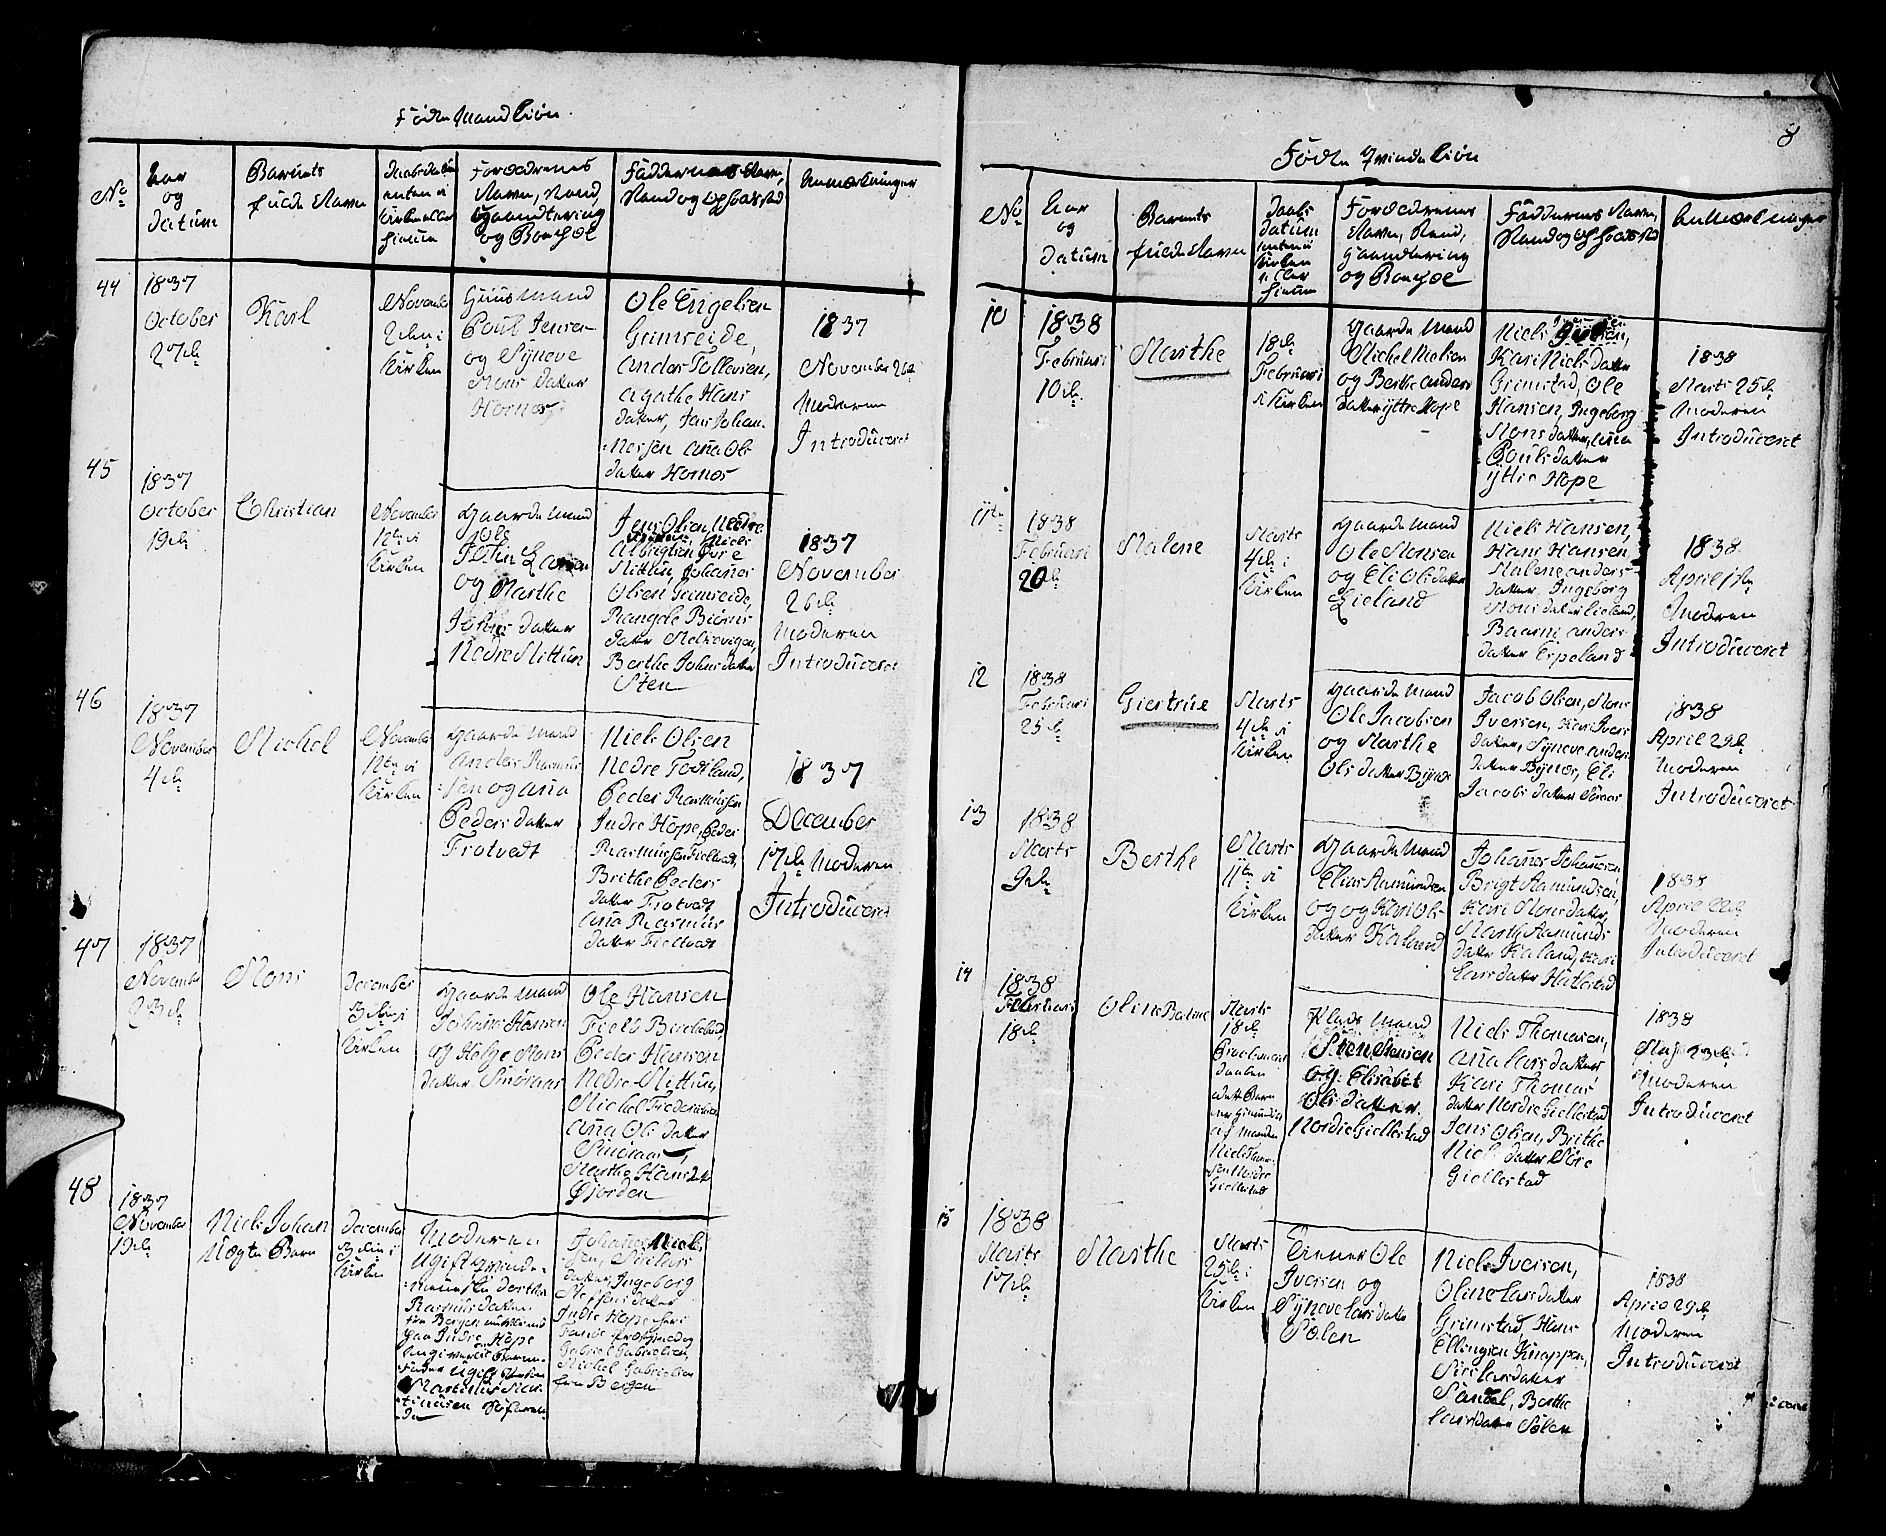 Födte Mandkiøn
No
Aar
og
datum
Barnets
fulde Navn
Daabs datum
enten i
Kirken eller
hiemme
Forældrenes
Navn, Stand,
Haandtering
og Bopæl
Faddernes Navn,
Stand og Opholdsted
Anmærkninger
44
1837
October
27de
Karl
November
2den i
Kirken
Huusmand
Poul Jensen
og Syneve
Mons datter
Hornes
Ole Engelsen
Grimseide,
Anders Tollevsen,
Agathe Hans
datter, Jens Johan-
nessen Ana Ols
datter Hornes
1837
November 26de
Moderen
Introduceret
45
1837
October
19de
Christian
November
12te i
Kirken
Gaarde Mand
John Larsen
og Marthe
Johns datter
Nedre Mittun
Jens Olsen Nedre
Mittun, Johanes
Olsen Grimseide,
Rangele Biørns
datter
Berthe Johns datter
Sten
1837
November
26de
Moderen
Introduceret
46
1837
November
4de
Michel
November
12te i
Kirken
Gaarde Mand
Anders Rasmus-
sen og Ana
Peders datter
Trotvedt
Niels Olsen
Nedre Totland,
Peder Rasmussen
Indre Hope, Peder
Rasmussen Fieltvedt,
Brithe Peders
datter Trotvedt
Ana Rasmus
datter Fieltvedt
1837
December
17de Moderen
Introduceret
47
1837
November
23de
Mons
December
3die i
Kirken
Gaarde Mand
Johanes Hansen
og Helge Mons
datter Smøraas
Ole Hansen
Fields Birkeland,
Peder Hansen
Nedre Mittun,
Michel Frederiksen
Ana Ols datter
Smøraas,
Marthe Hans dat
Øjorden
48
1837
November
19de
Niels Johan
Uægte Barn
December
3die i
Kirken
Moderen
Ugift qvinde-
menneske Dorthe
Rasmus datter
fra Bergen
paa Indre Hope
Angiver til Barne-
Fader Ugift
Martinus
Johanes Niel-
sen, Siri Lars
datter, Ingeborg
Steffens datter
Indre Hope
Gabriel Gabrielsen,
Michel Gabrielsen
fra Bergen
8
Födte Qvindekiön
No
Aar
og
datum
Barnets
fulde Navn
Daabs
datum
enten i
Kirken
eller
hiemme
Forældrenes
Navn, Stand,
Haandtering
og Bopæl
Faddernes Navn,
Stand og Opholdsted
Anmærkninger
10
1838
Februari
10de
Marthe
18de
Februari
i Kirken
Gaarde Mand
Michel Nielsen
og Berthe Anders
datter Yttre Hope
Niels
Kari Niels datter
Grimstad, Ole
Hansen, Ingeborg
Mons datter, Ana
Pouls datter
Yttre Hope
1838
Marts 25de
Moderen
Introduceret
11te
1838
Februari
20de
Malene
Marts
4de i
Kirken
Gaarde Mand
Ole Monsen
og Eli Ols datter
Lieland
Niels Hansen,
Hans Hansen,
Malene Anders
datter, Ingeborg
Mons datter Lieland,
Baarni Anders
datter Espeland
1838
April 1ste
Moderen
Introduceret
12
1838
Februari
25de
Giertrue
Marts
4de i
Kirken
Gaarde Mand
Ole Jacobsen
og Marthe
Ols datter Bynes
Jacob Olsen, Mons
Iversen, Kari Ivers
datter, Syneve Anders
datter Bynes, Eli
Jacobs datter Søraas
1838
April 29de
Moderen
Introduceret
13
1838
Marts
9de
Berthe
Marts
11te i
Kirken
Gaarde Mand
Elias Aamundsen
og og Kari Ols
datter Kaland
Johanes Johanesen,
Brigt Aamundsen,
Kari Mons datter,
Marthe Aamunds
datter Kaland, Kari
Lars datter Hatlestad
1838
April 22de
Moderen
Introduceret
14
1838
Februari
18de
Oline Bertine
Marts
18de
Proclameret
Daaben
af Manden
Niels Thom-
sen Nordre
Giellestad
Plads Mand
Sten Stensen
og Elisabet
Ols datter
Nordre Giellestad
Niels Thomasen,
Ana Lars datter,
Kari Thomas
datter Nordre Giellestad
Jens Olsen, Brithe
Niels datter Søre
Giellestad
1838
Maj 23de
Moderen
Introduceret
15
1838
Marts
17de
Marthe
Marts
25de i
Kirken
Tienner Ole
Iversen og
Syneve Lars datter
Sølen
Niels Iversen,
Oline Lars datter
Grimstad, Hans
Ellingsen Knappen,
Siri Lars datter
Sandal, Berthe
Lars datter Sølen
1838
April 29de
Moderen
Introduceret